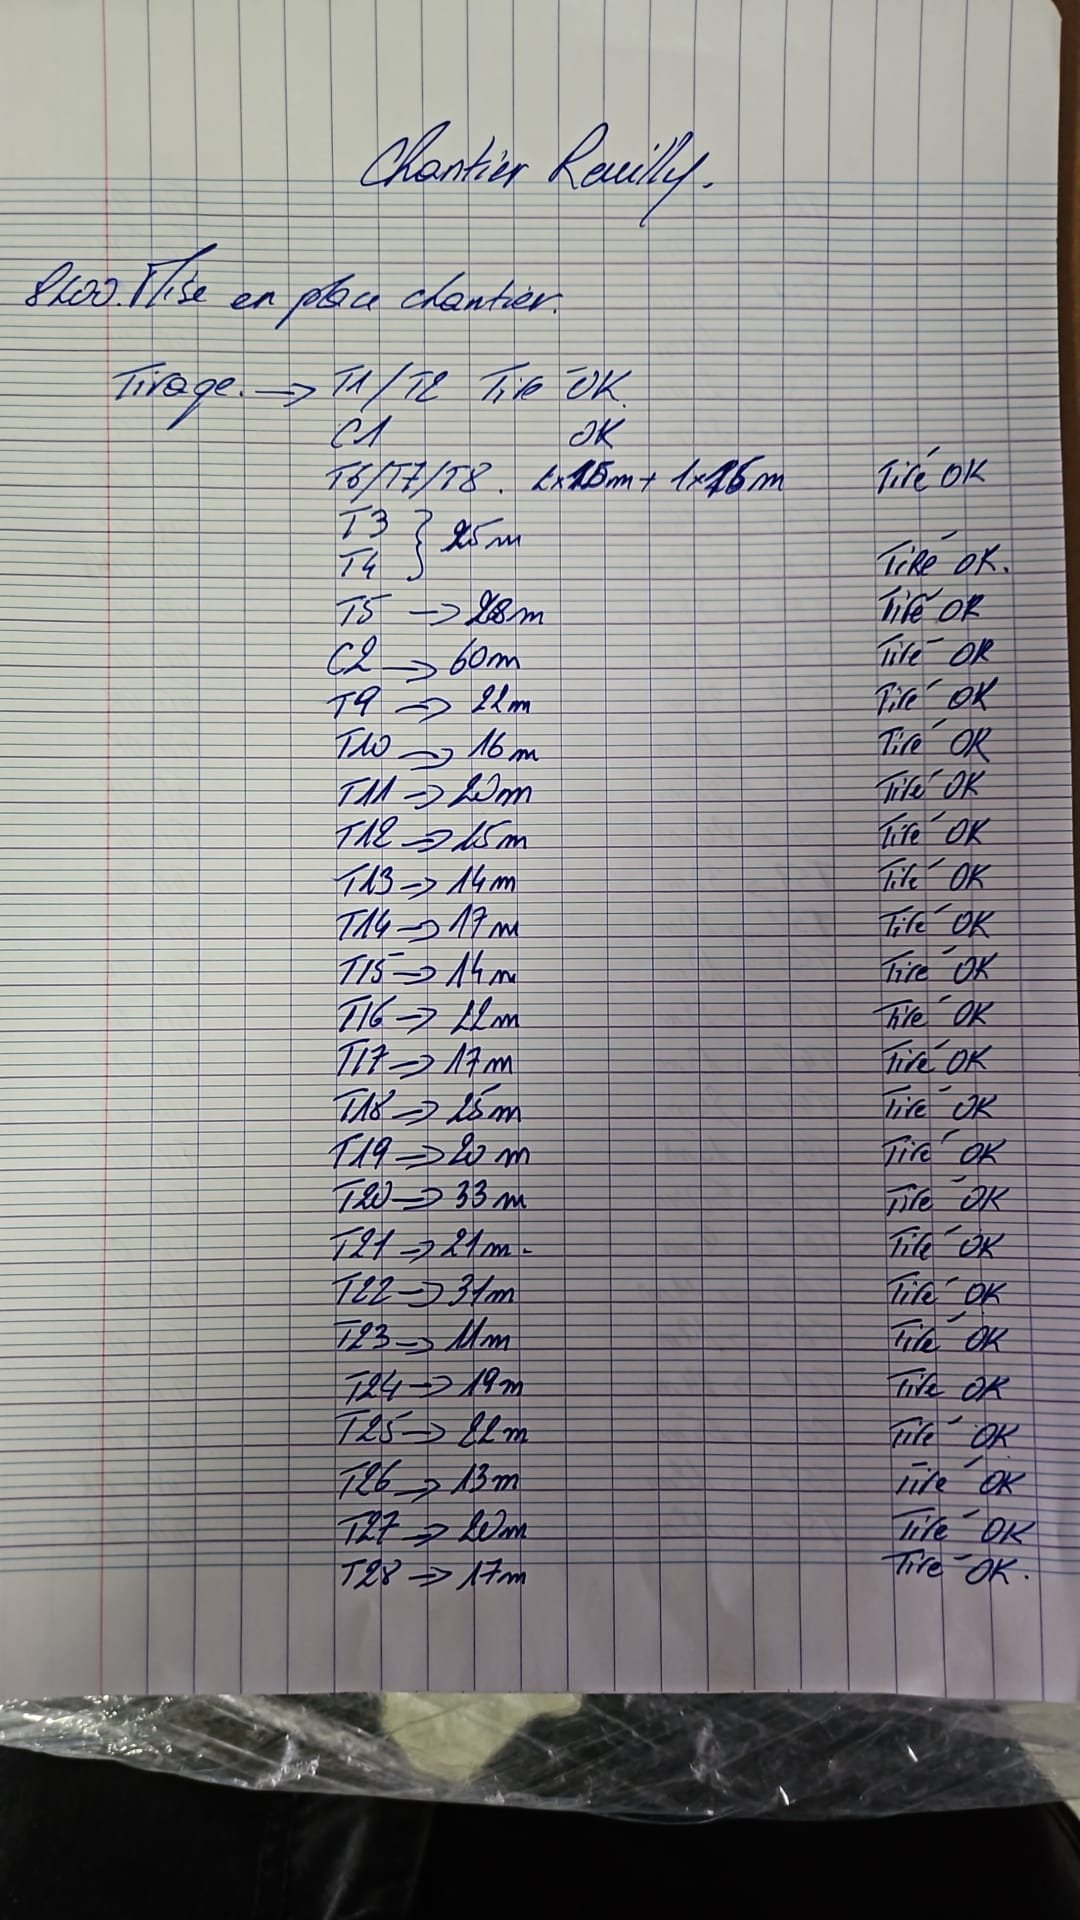 Chantier Reuilly.
8h00. Mise en place chantier.
Tirage. → T1/T2 Tiré OK.
C1 OK
T6/T7/T8. 2x15m + 1x16m Tiré OK
T3 } 25m
T4 } Tiré OK.
T5 → 28m Tiré OK
C2 → 60m Tiré OK
T9 → 22m Tiré OK
T10 → 16m Tiré OK
T11 → 20m Tiré OK
T12 → 15m Tiré OK
T13 → 14m Tiré OK
T14 → 17m Tiré OK
T15 → 14m Tiré OK
T16 → 22m Tiré OK
T17 → 17m Tiré OK
T18 → 25m Tiré OK
T19 → 20m Tiré OK
T20 → 33m Tiré OK
T21 → 21m. Tiré OK
T22 → 31m Tiré OK
T23 → 11m Tiré OK
T24 → 19m Tiré OK
T25 → 22m Tiré OK
T26 → 13m Tiré OK
T27 → 20m Tiré OK
T28 → 17m Tiré OK.